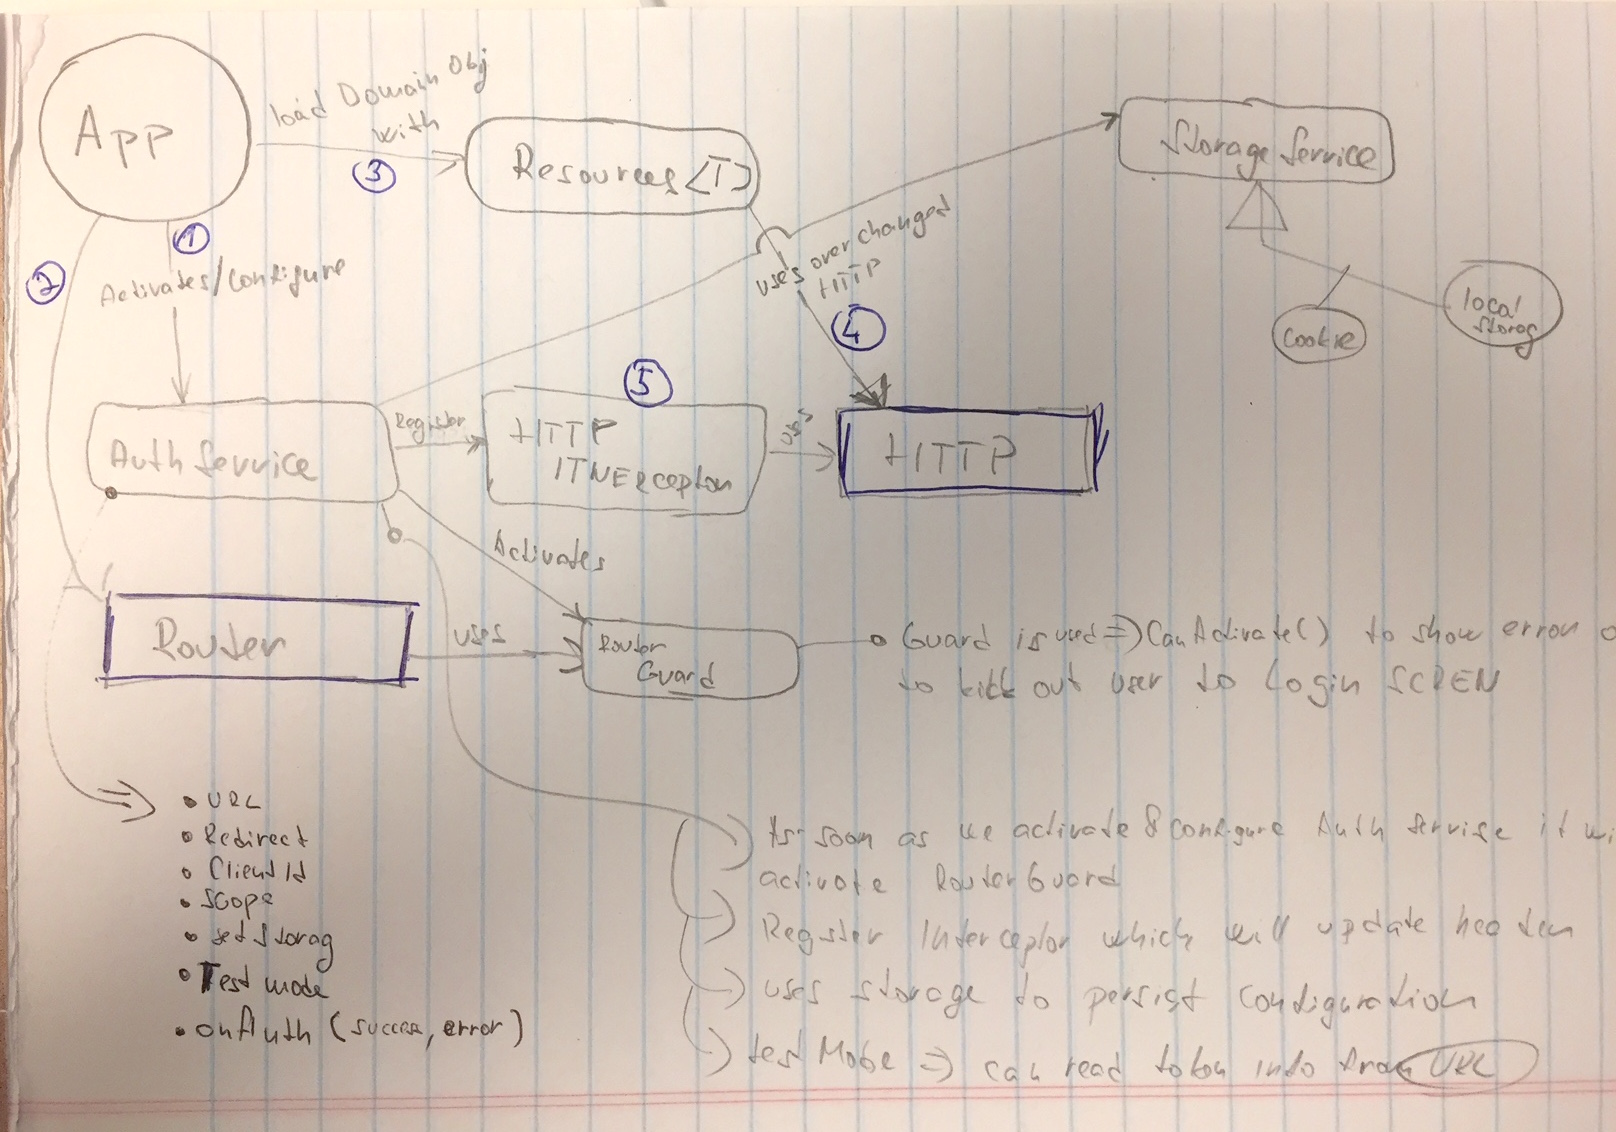 App
load Domain Obj
with
3
Resources <T>
Storage Service
1
2
Activates/Configure
uses over changed
HTTP
4
Cookie
local
Storag
5
Auth Service
Register
HTTP
ITNERceptor
uses
HTTP
Activates
Router
uses
Router
Guard
Guard is used => CanActivate() to show error o
to kick out user to Login SCREN
• URL
• Redirect
• Client Id
• Scope
• set Storag
• Test mode
• onAuth (succes, error)
As soon as we activate & configure Auth Servise it wi
activate Router Guard
Register Interceptor which will update
uses storage to persist Configuration
test Mode => can read token info from URL